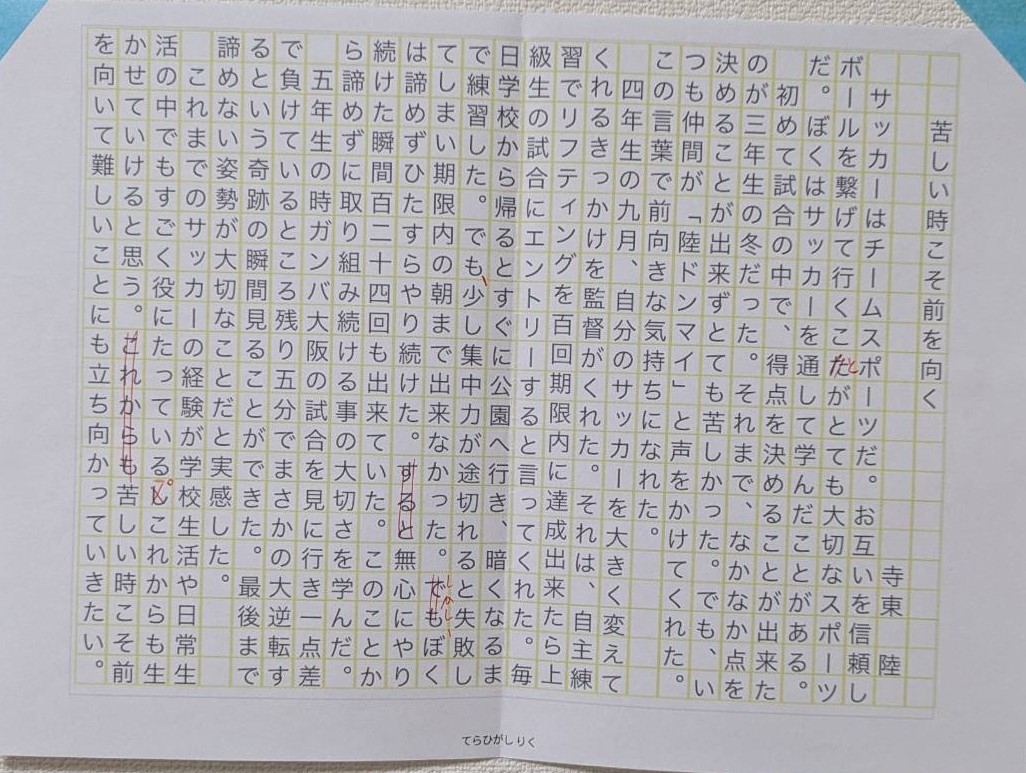 苦しい時こそ前を向く
寺東 陸
サッカーはチームスポーツだ。お互いを信頼し
ボールを繋げて行くことがとても大切なスポーツ
だ。ぼくはサッカーを通して学んだことがある。
初めて試合の中で、得点を決めることが出来た
のが三年生の冬だった。それまで、なかなか点を
決めることが出来ずとても苦しかった。でも、い
つも仲間が「陸ドンマイ」と声をかけてくれた。
この言葉で前向きな気持ちになれた。
四年生の九月、自分のサッカーを大きく変えて
くれるきっかけを監督がくれた。それは、自主練
習でリフティングを百回期限内に達成出来たら上
級生の試合にエントリーすると言ってくれた。毎
日学校から帰るとすぐに公園へ行き、暗くなるま
で練習した。でも、少し集中力が途切れると失敗し
てしまい期限内の朝まで出来なかった。でもぼく
しかし
は諦めずひたすらやり続けた。すると無心にやり
続けた瞬間百二十四回も出来ていた。このことか
ら諦めずに取り組み続ける事の大切さを学んだ。
五年生の時ガンバ大阪の試合を見に行き一点差
で負けているところ残り五分でまさかの大逆転す
るという奇跡の瞬間見ることができた。最後まで
諦めない姿勢が大切なことだと実感した。
これまでのサッカーの経験が学校生活や日常生
活の中でもすごく役にたっている。これからも生
かせていけると思う。これからも苦しい時こそ前
を向いて難しいことにも立ち向かっていきたい。
てらひがしりく